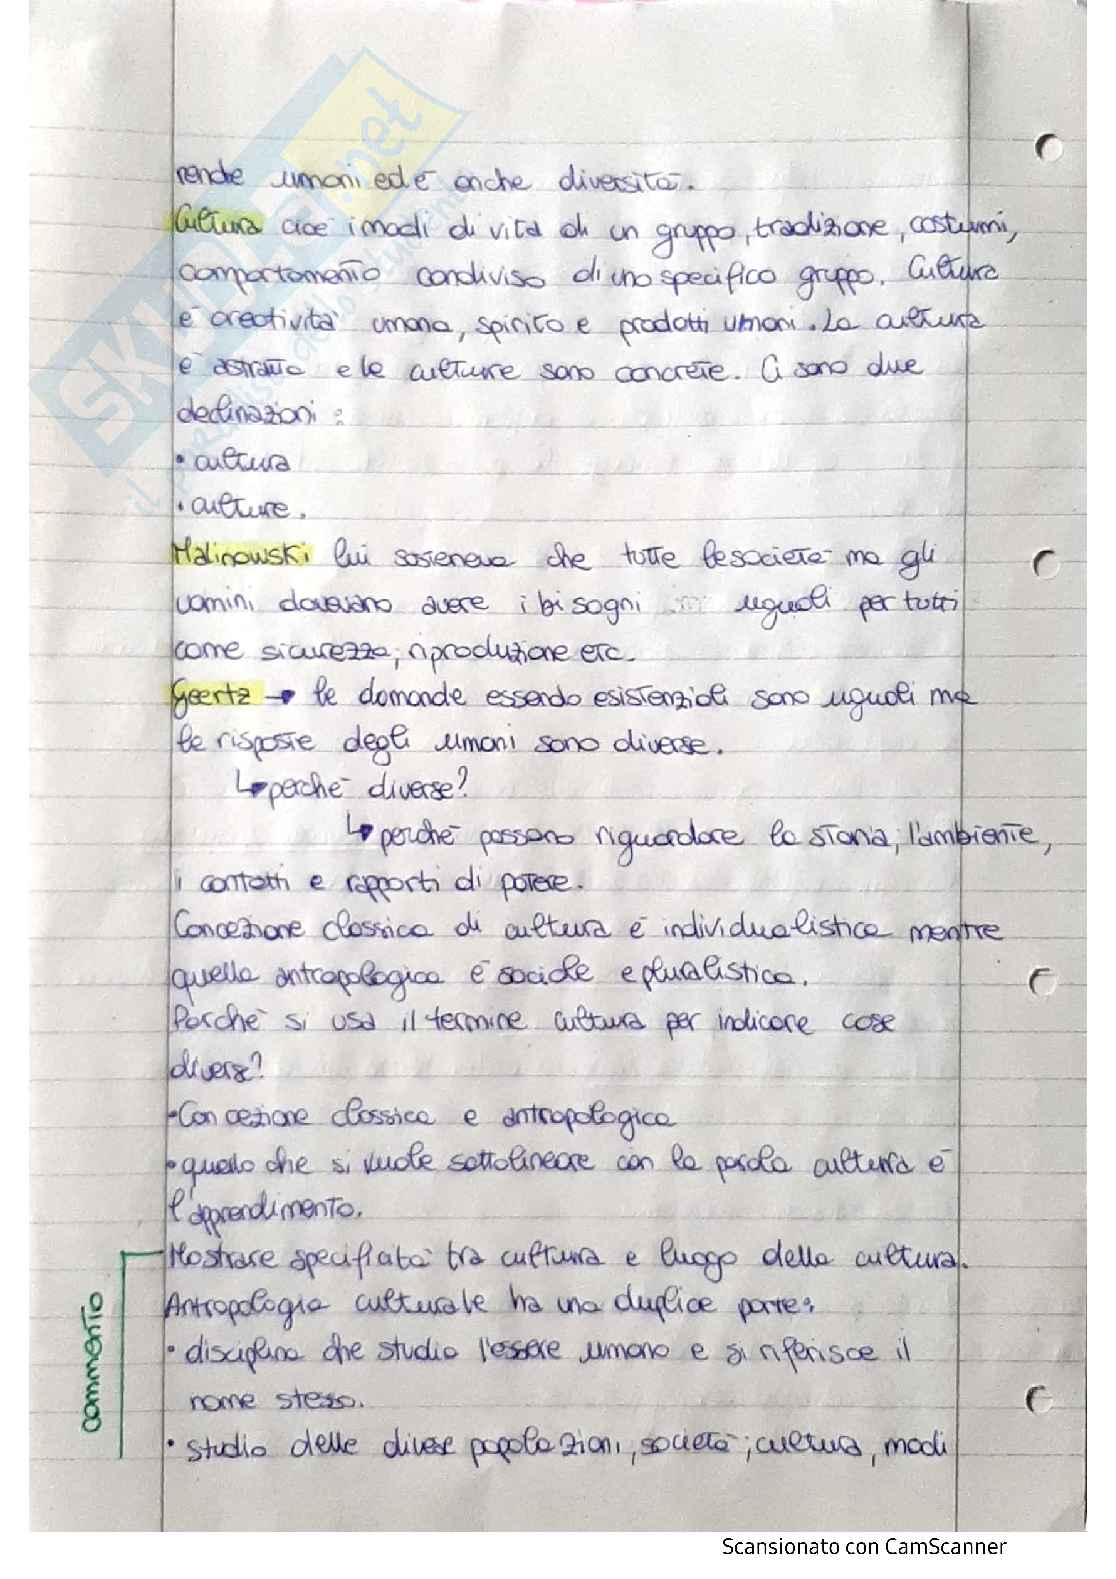 rende umani ed è anche diversità.
Cultura cioè i modi di vita di un gruppo, tradizione, costumi,
comportamento condiviso di uno specifico gruppo. Cultura
è creatività umana, spirito e prodotti umani. La cultura
è astratta e le culture sono concrete. Ci sono due
declinazioni:
• cultura
• culture.
Malinowski lui sosteneva che tutte le società ma gli
uomini dovevano avere i bisogni uguali per tutti
come sicurezza, riproduzione etc.
Geertz → le domande essendo esistenziali sono uguali ma
le risposte degli umani sono diverse.
↳ perché diverse?
↳ perché possono riguardare la storia, l'ambiente,
i contatti e rapporti di potere.
Concezione classica di cultura è individualistica mentre
quella antropologica è sociale e pluralistica.
Perché si usa il termine cultura per indicare cose
diverse?
• Concezione classica e antropologica
• quello che si vuole sottolineare con la parola cultura è
l'apprendimento.
Mostrare specificità tra cultura e luogo della cultura.
Antropologia culturale ha una duplice parte:
• disciplina che studia l'essere umano e si riferisce il
nome stesso.
• studio delle diverse popolazioni, società, cultura, modi
commento
SKUOLA.net
Scansionato con CamScanner